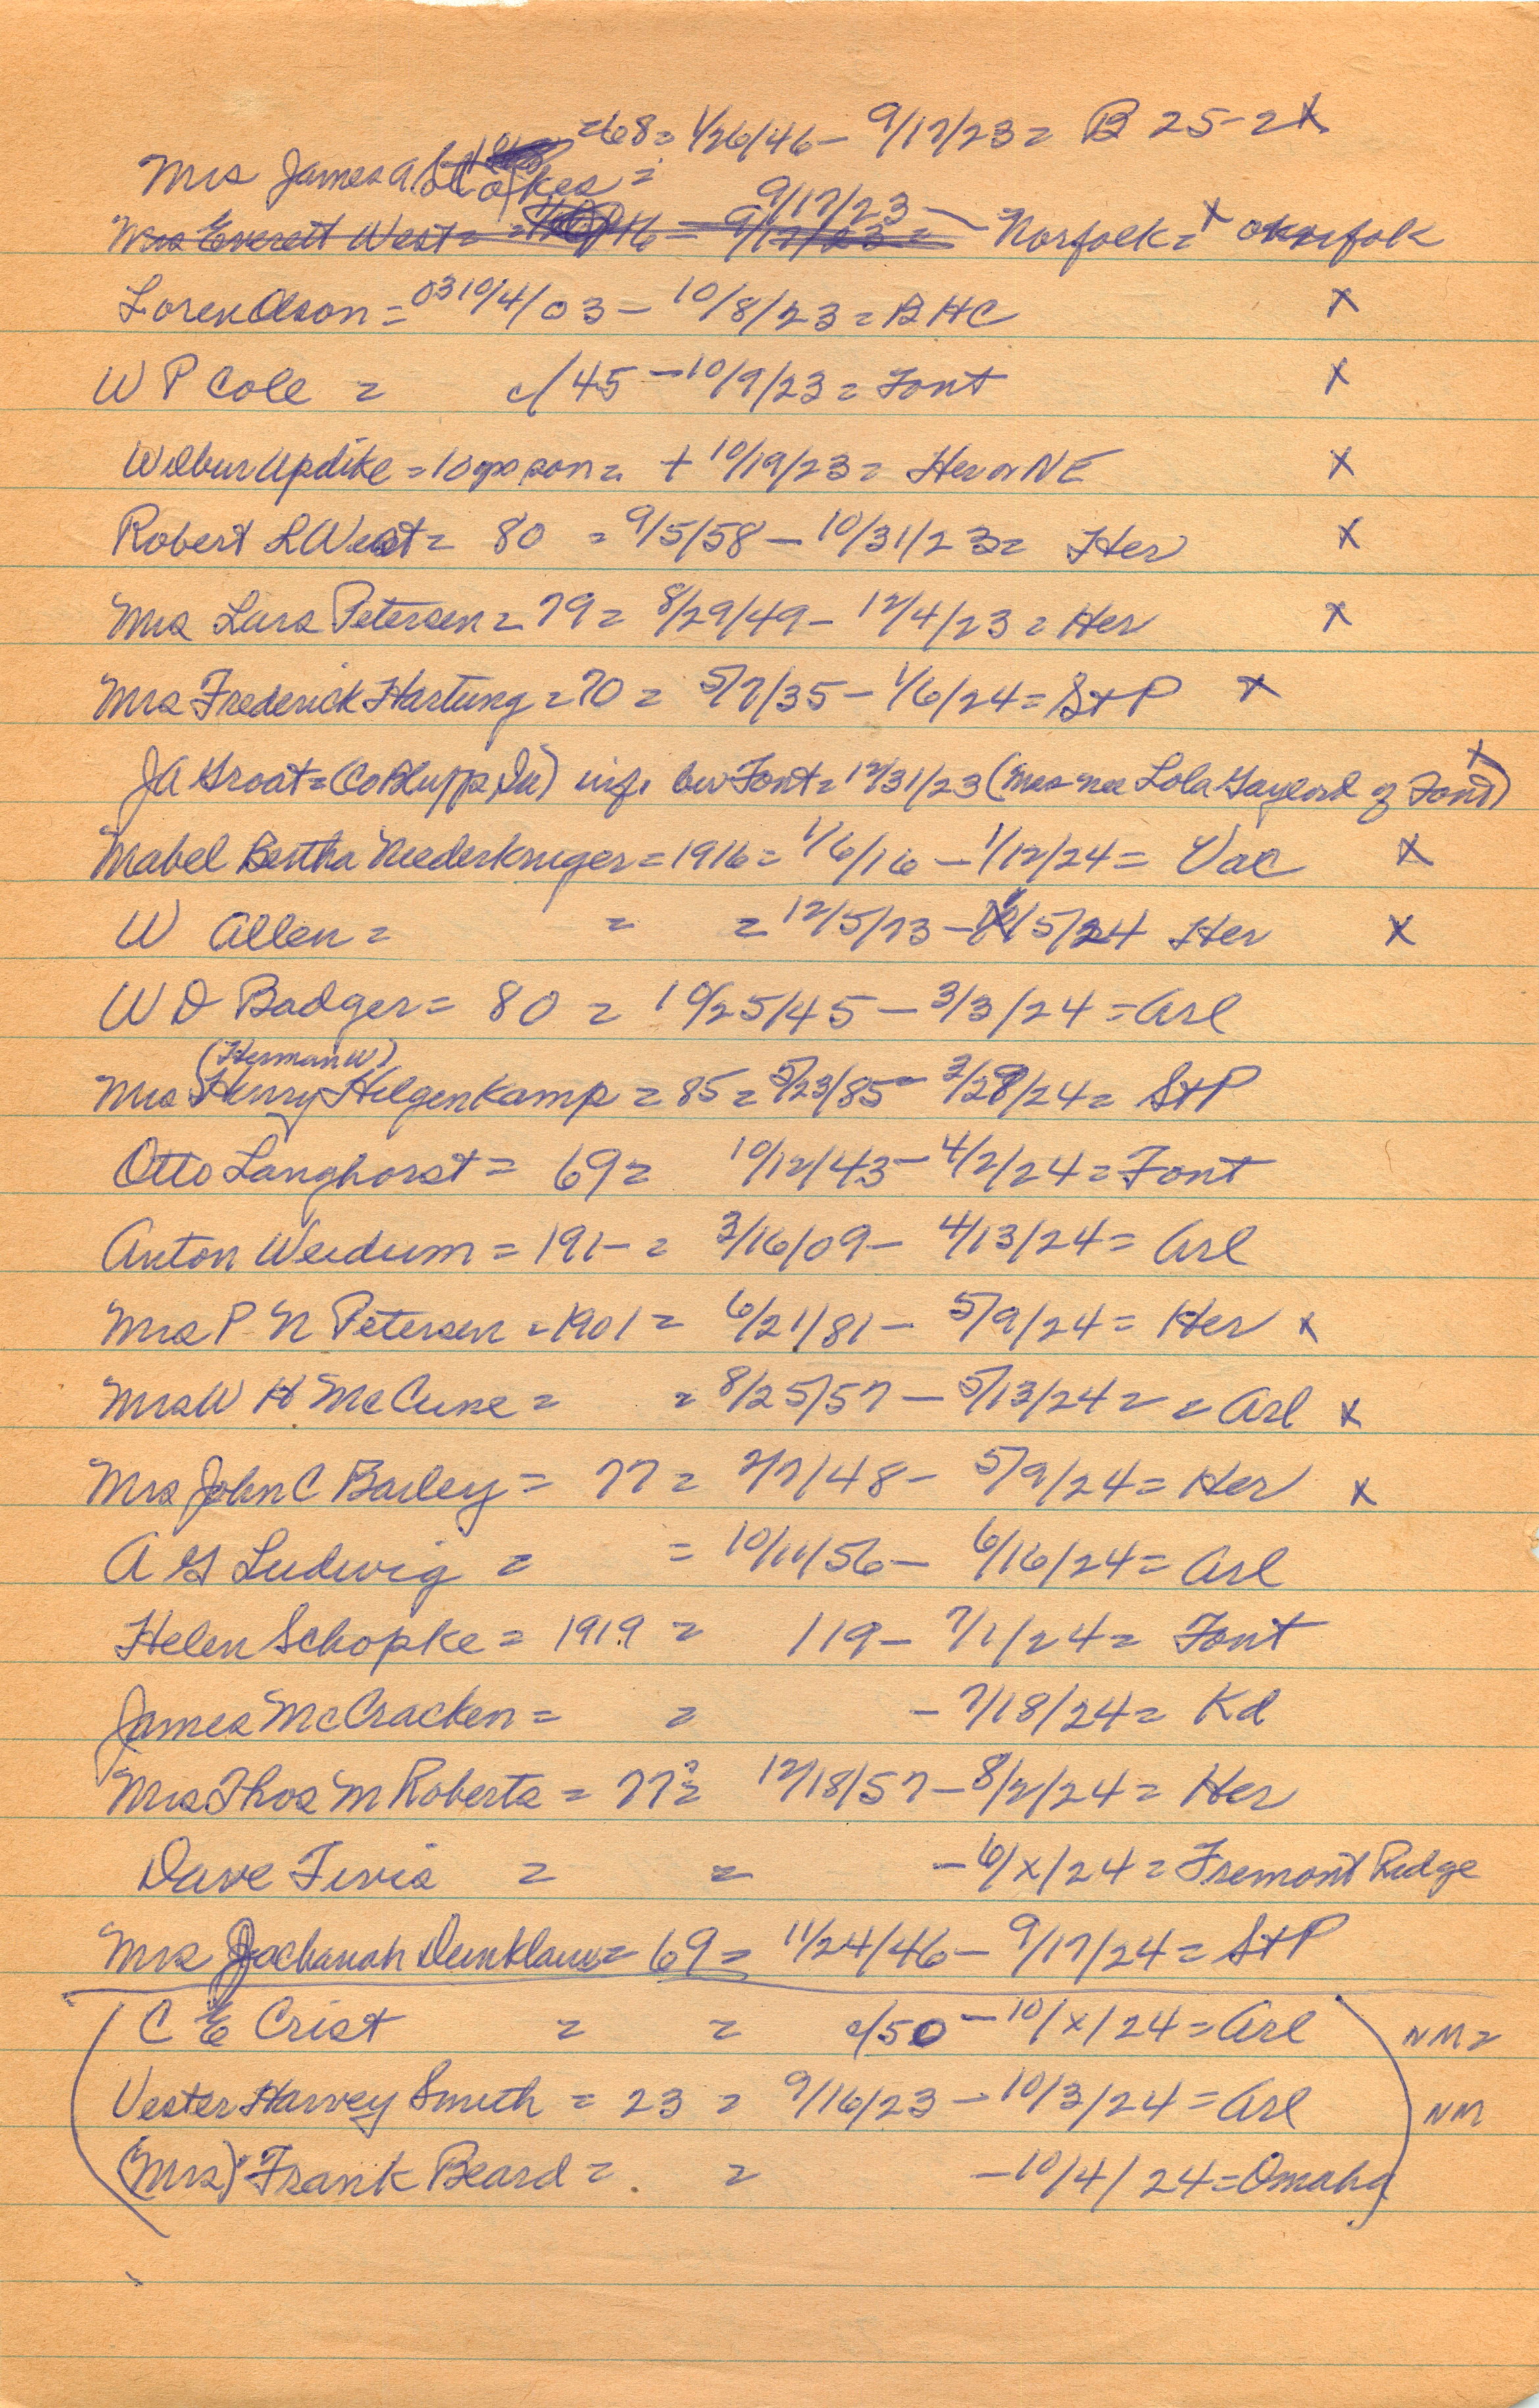 =68= 1/26/46- 9/17/23= B 25-2 X
Mrs James A. Stokes =
9/17/23
Mrs Everett West = = 9/17/23 = Norfolk = X
Loren Olson = 03 10/4/03 - 10/8/23 = BHC X
W P Cole = c/45 - 10/9/23 = Font X
Wilbur Updike = 10 son = + 10/19/23 = Her NE X
Robert L West = 80 = 9/5/58 - 10/31/23 = Her X
Mrs Lars Petersen = 79 = 8/29/49 - 12/4/23 = Her X
Mrs Frederick Hartung = 70 = 5/7/35 - 1/6/24 = StP X
X
JA Groat = (Co Bluffs, Ia) inf. bur Font = 12/31/23 (Mrs nee Lola Gaylord of Font)
Mabel Bertha Niederkruger = 1916 = 1/6/16 - 1/12/24 = Vac X
W Allen = = = 12/5/73 - /5/24 Her X
W D Badger = 80 = 10/25/45 - 3/3/24 = Arl
(Herman W)
Mrs Henry Hilgenkamp = 85 = 5/23/85 - 2/28/24 = StP
Otto Langhorst = 69 = 10/12/43 - 4/2/24 = Font
Anton Weidum = 191- = 3/16/09 - 4/13/24 = Arl
Mrs P N Petersen = 1901 = 6/21/81 - 5/9/24 = Her X
Mrs W H McCune = = 8/25/57 - 5/13/24 = = Arl X
Mrs John C Bailey = 77 = 2/7/48 - 5/9/24 = Her X
A G Ludwig = = 10/11/56 - 6/16/24 = Arl
Helen Schopke = 1919 = /19 - 7/1/24 = Font
James McCracken = = - 7/18/24 = Kd
Mrs Thos M Roberts = 77? = 12/18/57 - 8/2/24 = Her
Dave Tivis = = - 6/x/24 = Fremont Ridge
Mrs Jachanah Dunklau = 69 = 11/24/46 - 9/17/24 = StP
(C E Crist = = c/50 - 10/x/24 = Arl) NM =
Vester Harvey Smith = 23 = 9/16/23 - 10/3/24 = Arl NM
(Mrs) Frank Beard = = - 10/4/24 = Omaha